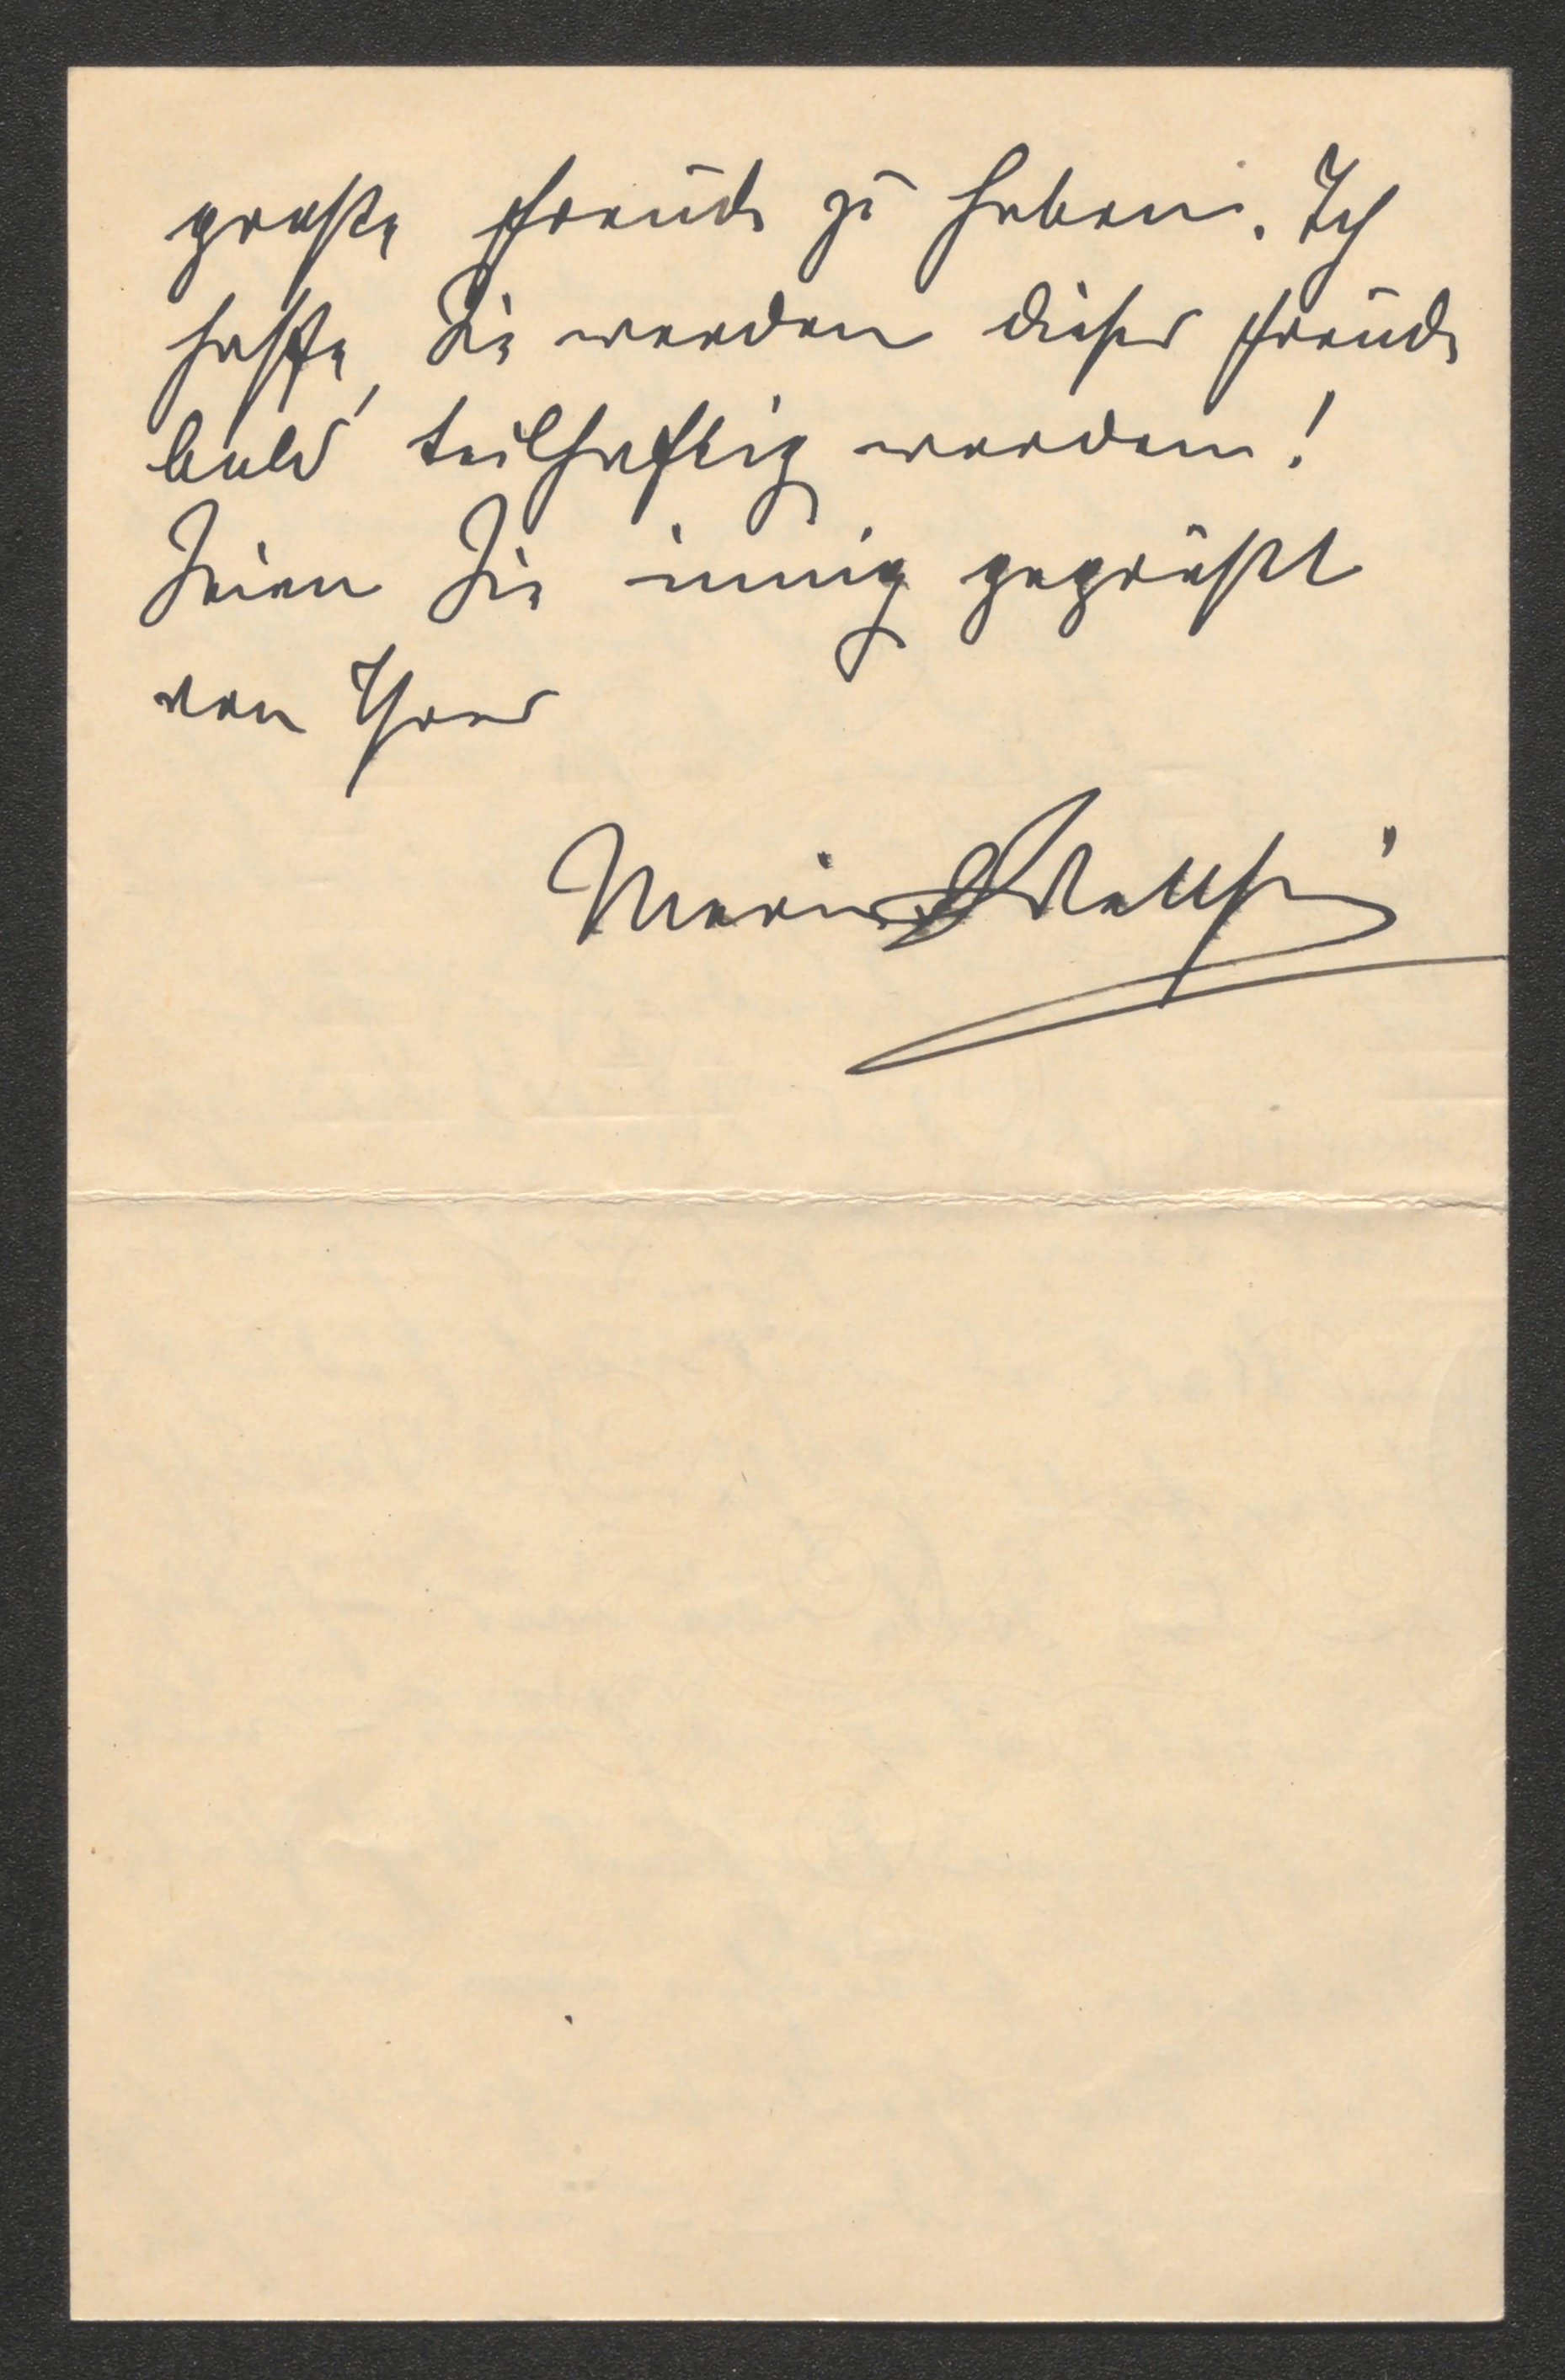 große Freude zu haben. Ich
hoffe, Sie werden dieser Freude
bald teilhaftig werden!
Seien Sie innig gegrüßt
von Ihrer
Marie